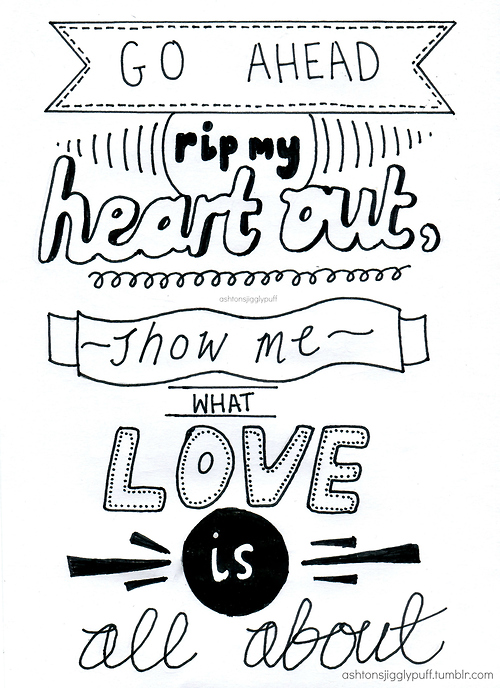 GO AHEAD
rip my
heart out,
ashtonsjigglypuff
~show me~
WHAT
LOVE
is
all about
ashtonsjigglypuff.tumblr.com